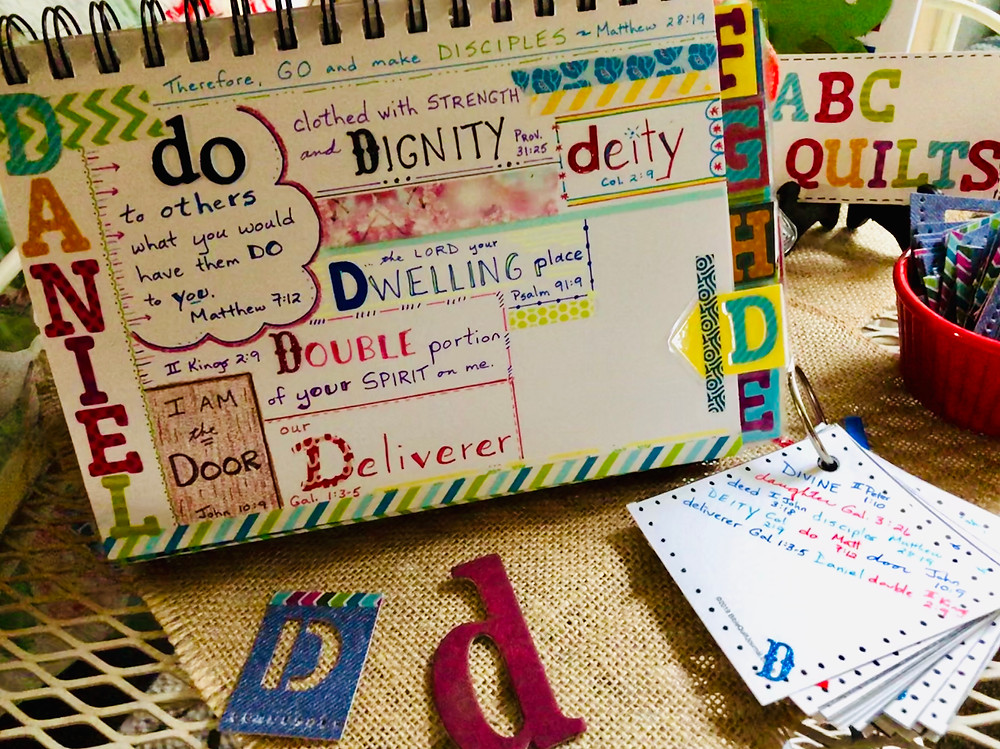 Therefore, GO and make DISCIPLES ~ Matthew 28:19
DANIEL
do
to others
what you would
have them DO
to you.
Matthew 7:12
clothed with STRENGTH
and DIGNITY Prov. 31:25
deity
Col. 2:9
the LORD your
DWELLING place
Psalm 91:9
II Kings 2:9 DOUBLE portion
of your SPIRIT on me.
I AM
the
DOOR
John 10:9
our
Deliverer
Gal. 1:3-5
F
G
H
D
E
ABC
QUILTS
DIVINE II Peter 1:10
daughter Gal 3:26
deed I John 3:18 disciples Matthew 28:19
DEITY Col 2:9 do Matt 7:12 door John 10:9
deliverer Gal 1:3-5 Daniel double II King 2:9
D
D
d